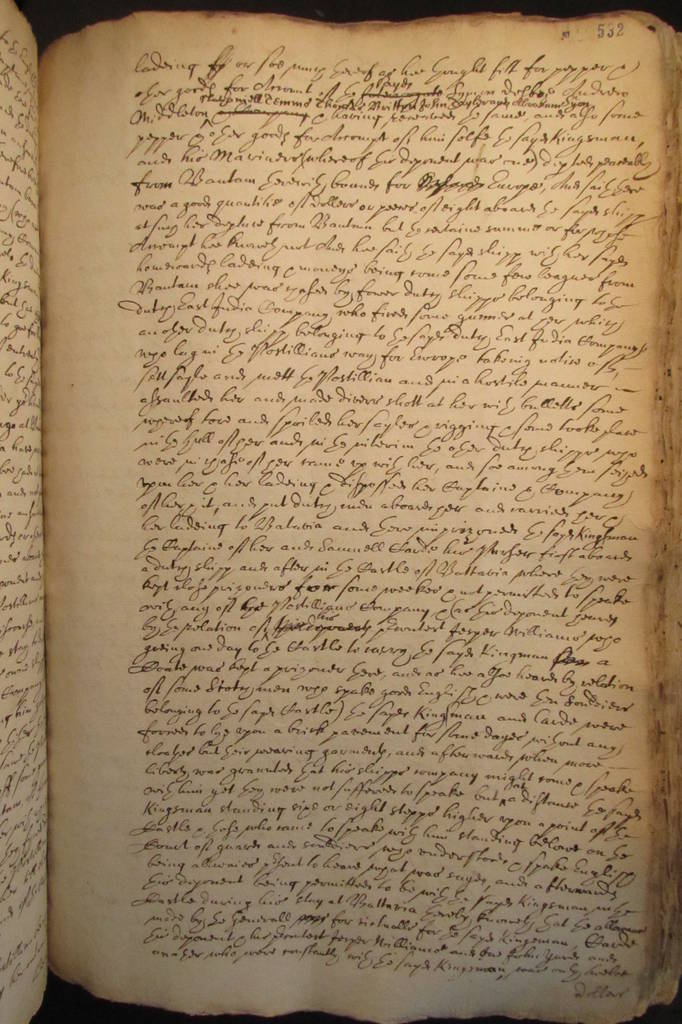 532
ladeing or soe much thereof as hee thought fitt for pepper &
other goods for Account of the sayd Symon Delboe Andrew
Middleton Nathaniell Temms Thomas Britton
and having received the same, and also some
pepper & other goods for Accompt of him selfe the sayd Kingsman,
and his Mariners (whereof this deponent was one) departed peaceably
from Bantam therewith, bound for Europe, And saith there
was a good quantitie of Dollers or peeces of eight aboard the sayd shipp
at such her departure from Bantam but the certaine summe or for whose
Accompt hee knoweth not And hee saith the sayd shipp with her sayd
homeward ladeing & moneys being come some few leagues from
Bantam shee was chased by fower dutch shipps belonging to the
dutch East India Company, who fired some gunnes at her which
another dutch shipp belonging to the sayd Dutch East India Company
who lay in the Postillians way for Europe takeing notice of,
sett sayle and mett the Postillian and in a hostile manner
assaulted her and made divers shott at her with bulletts some
whereof tore and spoiled her sayles & rigging & some tooke place
in the hull of her and in the interim the other dutch shipps who
were in chase of her came up with her, and soe among them seized
upon her & her ladeing & dispossed her Captaine & Company
of the same, and put dutch men aboard her and carried her &
her ladeing to Batavia and there imprisoned the sayd Kingsman
the Captaine of her and Samuell Carde his Purser first aboard
a dutch shipp and after in the Castle of Battavia where they were
kept close prisoners for some weekes & not permitted to speake
with any of the Postillians Company, (as this deponent heard
by the relation of his Contest Jesper Williams who
going one day to the Castle to carry the sayd Kingsman a
Coate was kept a prisoner there, and as hee alsoe heard by relation
of some Dutchmen who spake good English & were then souldiers
belonging to the sayd Castle) the sayd Kingsman and Carde were
forced to lye upon a brick pavement for some dayes without any
cloathes but their wearing garments, and afterwards when more
liberty was granted that his shipps company might come & speake
with him yet they were not suffered to speake but at a distance the sayd
Kingsman standing six or eight stepps higher upon a point of the
Castle & those who came to speake with him standing belowe on the
Court of guard and souldiers who understood & spake English
being allwaies present to heare what was sayd, and afterwards
this deponent being permitted to be with the sayd Kingsman in the
Castle during his stay at Battavia thereby knoweth that the allowance
made by the Generall for victualls for the sayd Kingsman, Carde
this deponent & his Contest Jesper Williams and one John and
another who were constantly with the sayd Kingsman, was only twelve
dollers